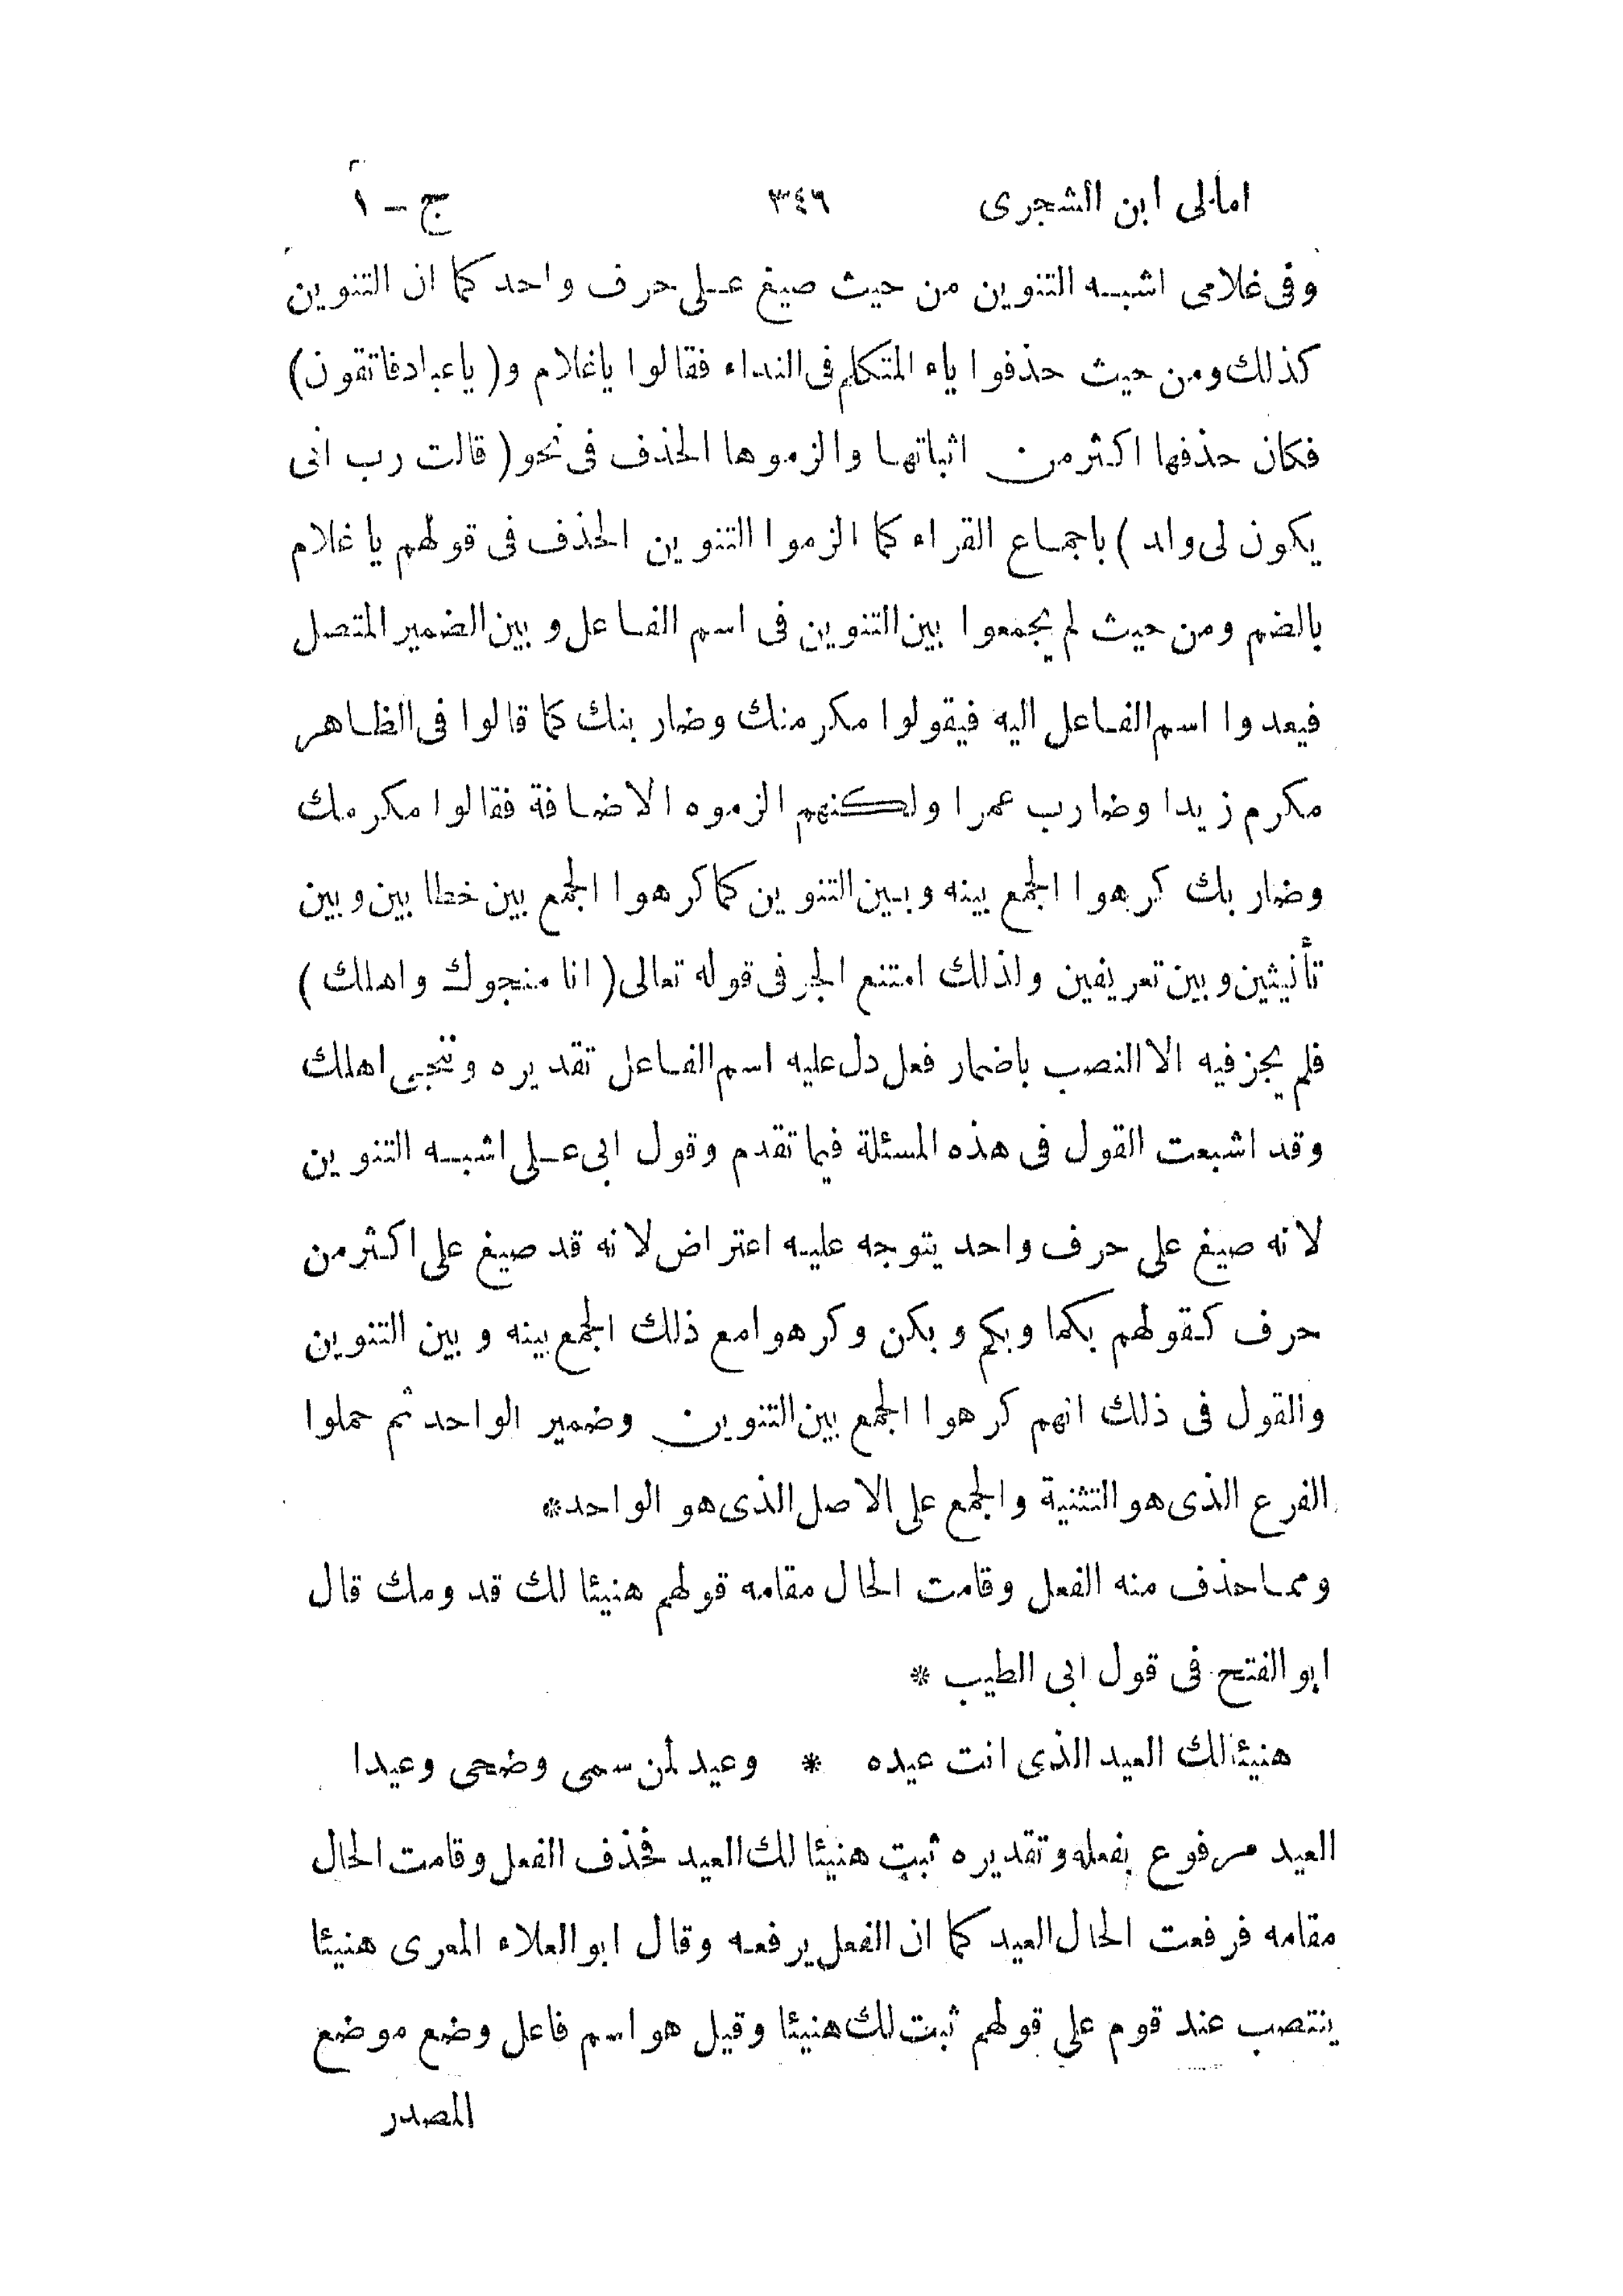 امالى ابن الشجرى ٣٤٦ ج – ١
وفى غلامى اشبه التنوين من حيث صيغ على حرف واحد كما ان التنوين
كذلك ومن حيث حذفوا ياء المتكلم فى النداء فقالوا ياغلام و( ياعبادفاتقون)
فكان حذفها اكثر من اثباتها والزموها الحذف فى نحو( قالت رب انى
يكون لى ولد ) باجماع القراء كما الزموا التنوين الحذف فى قولهم يا غلام
بالضم ومن حيث لم يجمعوا بين التنوين فى اسم الفاعل وبين الضمير المتصل
فيعدوا اسم الفاعل اليه فيقولوا مكرمنك وضاربنك كما قالوا فى الظاهر
مكرم زيدا وضارب عمرا ولكنهم الزموه الاضافة فقالوا مكرمك
وضاربك كرهوا الجمع بينه وبين التنوين كما كرهوا الجمع بين خطابين وبين
تأنيثين وبين تعريفين ولذلك امتنع الجر فى قوله تعالى( انا منجوك واهلك )
فلم يجز فيه الا النصب باضمار فعل دل عليه اسم الفاعل تقديره وننجى اهلك
وقد اشبعت القول فى هذه المسئلة فيما تقدم وقول ابى على اشبه التنوين
لانه صيغ على حرف واحد يتوجه عليه اعتراض لانه قد صيغ على اكثر من
حرف كقولهم بكما وبكم وبكن وكرهوا مع ذلك الجمع بينه وبين التنوين
والقول فى ذلك انهم كرهوا الجمع بين التنوين وضمير الواحد ثم حملوا
الفرع الذى هو التثنية والجمع على الاصل الذى هو الواحد*
ومما حذف منه الفعل وقامت الحال مقامه قولهم هنيئا لك قدومك قال
ابو الفتح فى قول ابى الطيب *
هنيئا لك العيد الذى انت عيده * وعيد لمن سمى وضحى وعيدا
العيد مرفوع بفعله وتقديره ثبت هنيئا لك العيد فحذف الفعل وقامت الحال
مقامه فرفعت الحال العيد كما ان الفعل يرفعه وقال ابو العلاء المعرى هنيئا
ينتصب عند قوم على قولهم ثبت لك هنيئا وقيل هو اسم فاعل وضع موضع
المصدر